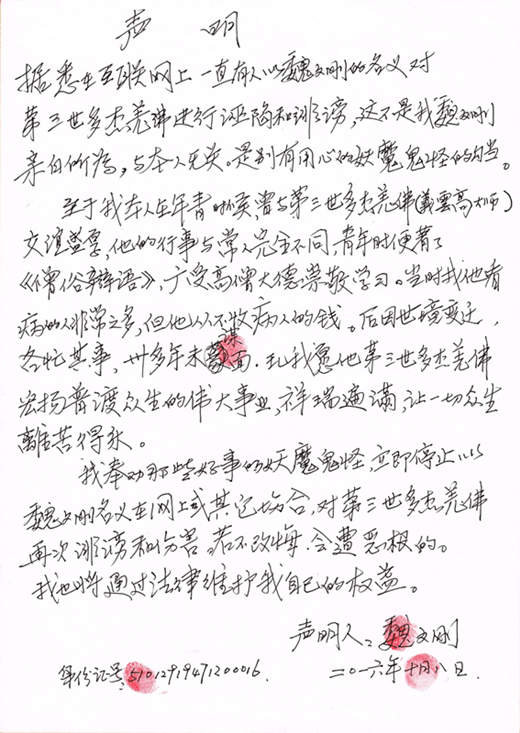 声 明
据悉在互联网上一直有人以魏文刚的名义对
第三世多杰羌佛进行诬陷和诽谤，这不是我魏文刚
亲自所为，与本人无关。是别有用心的妖魔鬼怪的勾当。
至于我本人在年青时候，曾与第三世多杰羌佛（義雲高大师）
交谊益厚，他的行事与常人完全不同，青年时便著了
《僧俗辩语》，广受高僧大德崇敬学习。当时找他看
病的人非常之多，但他从不收病人的钱。后因世境变迁，
各忙其事，卅多年未谋面。现我愿他第三世多杰羌佛
宏扬普渡众生的伟大事业，祥瑞遍满，让一切众生
離苦得乐。
我奉劝那些好事的妖魔鬼怪，立即停止以
魏文刚名义在网上或其它场合，对第三世多杰羌佛
再次诽谤和伤害。若不改悔，会遭恶报的。
我也将通过法律维护我自己的权益。
声明人：魏文刚
身份记号：51012919471200016. 二〇一六年十月八日.